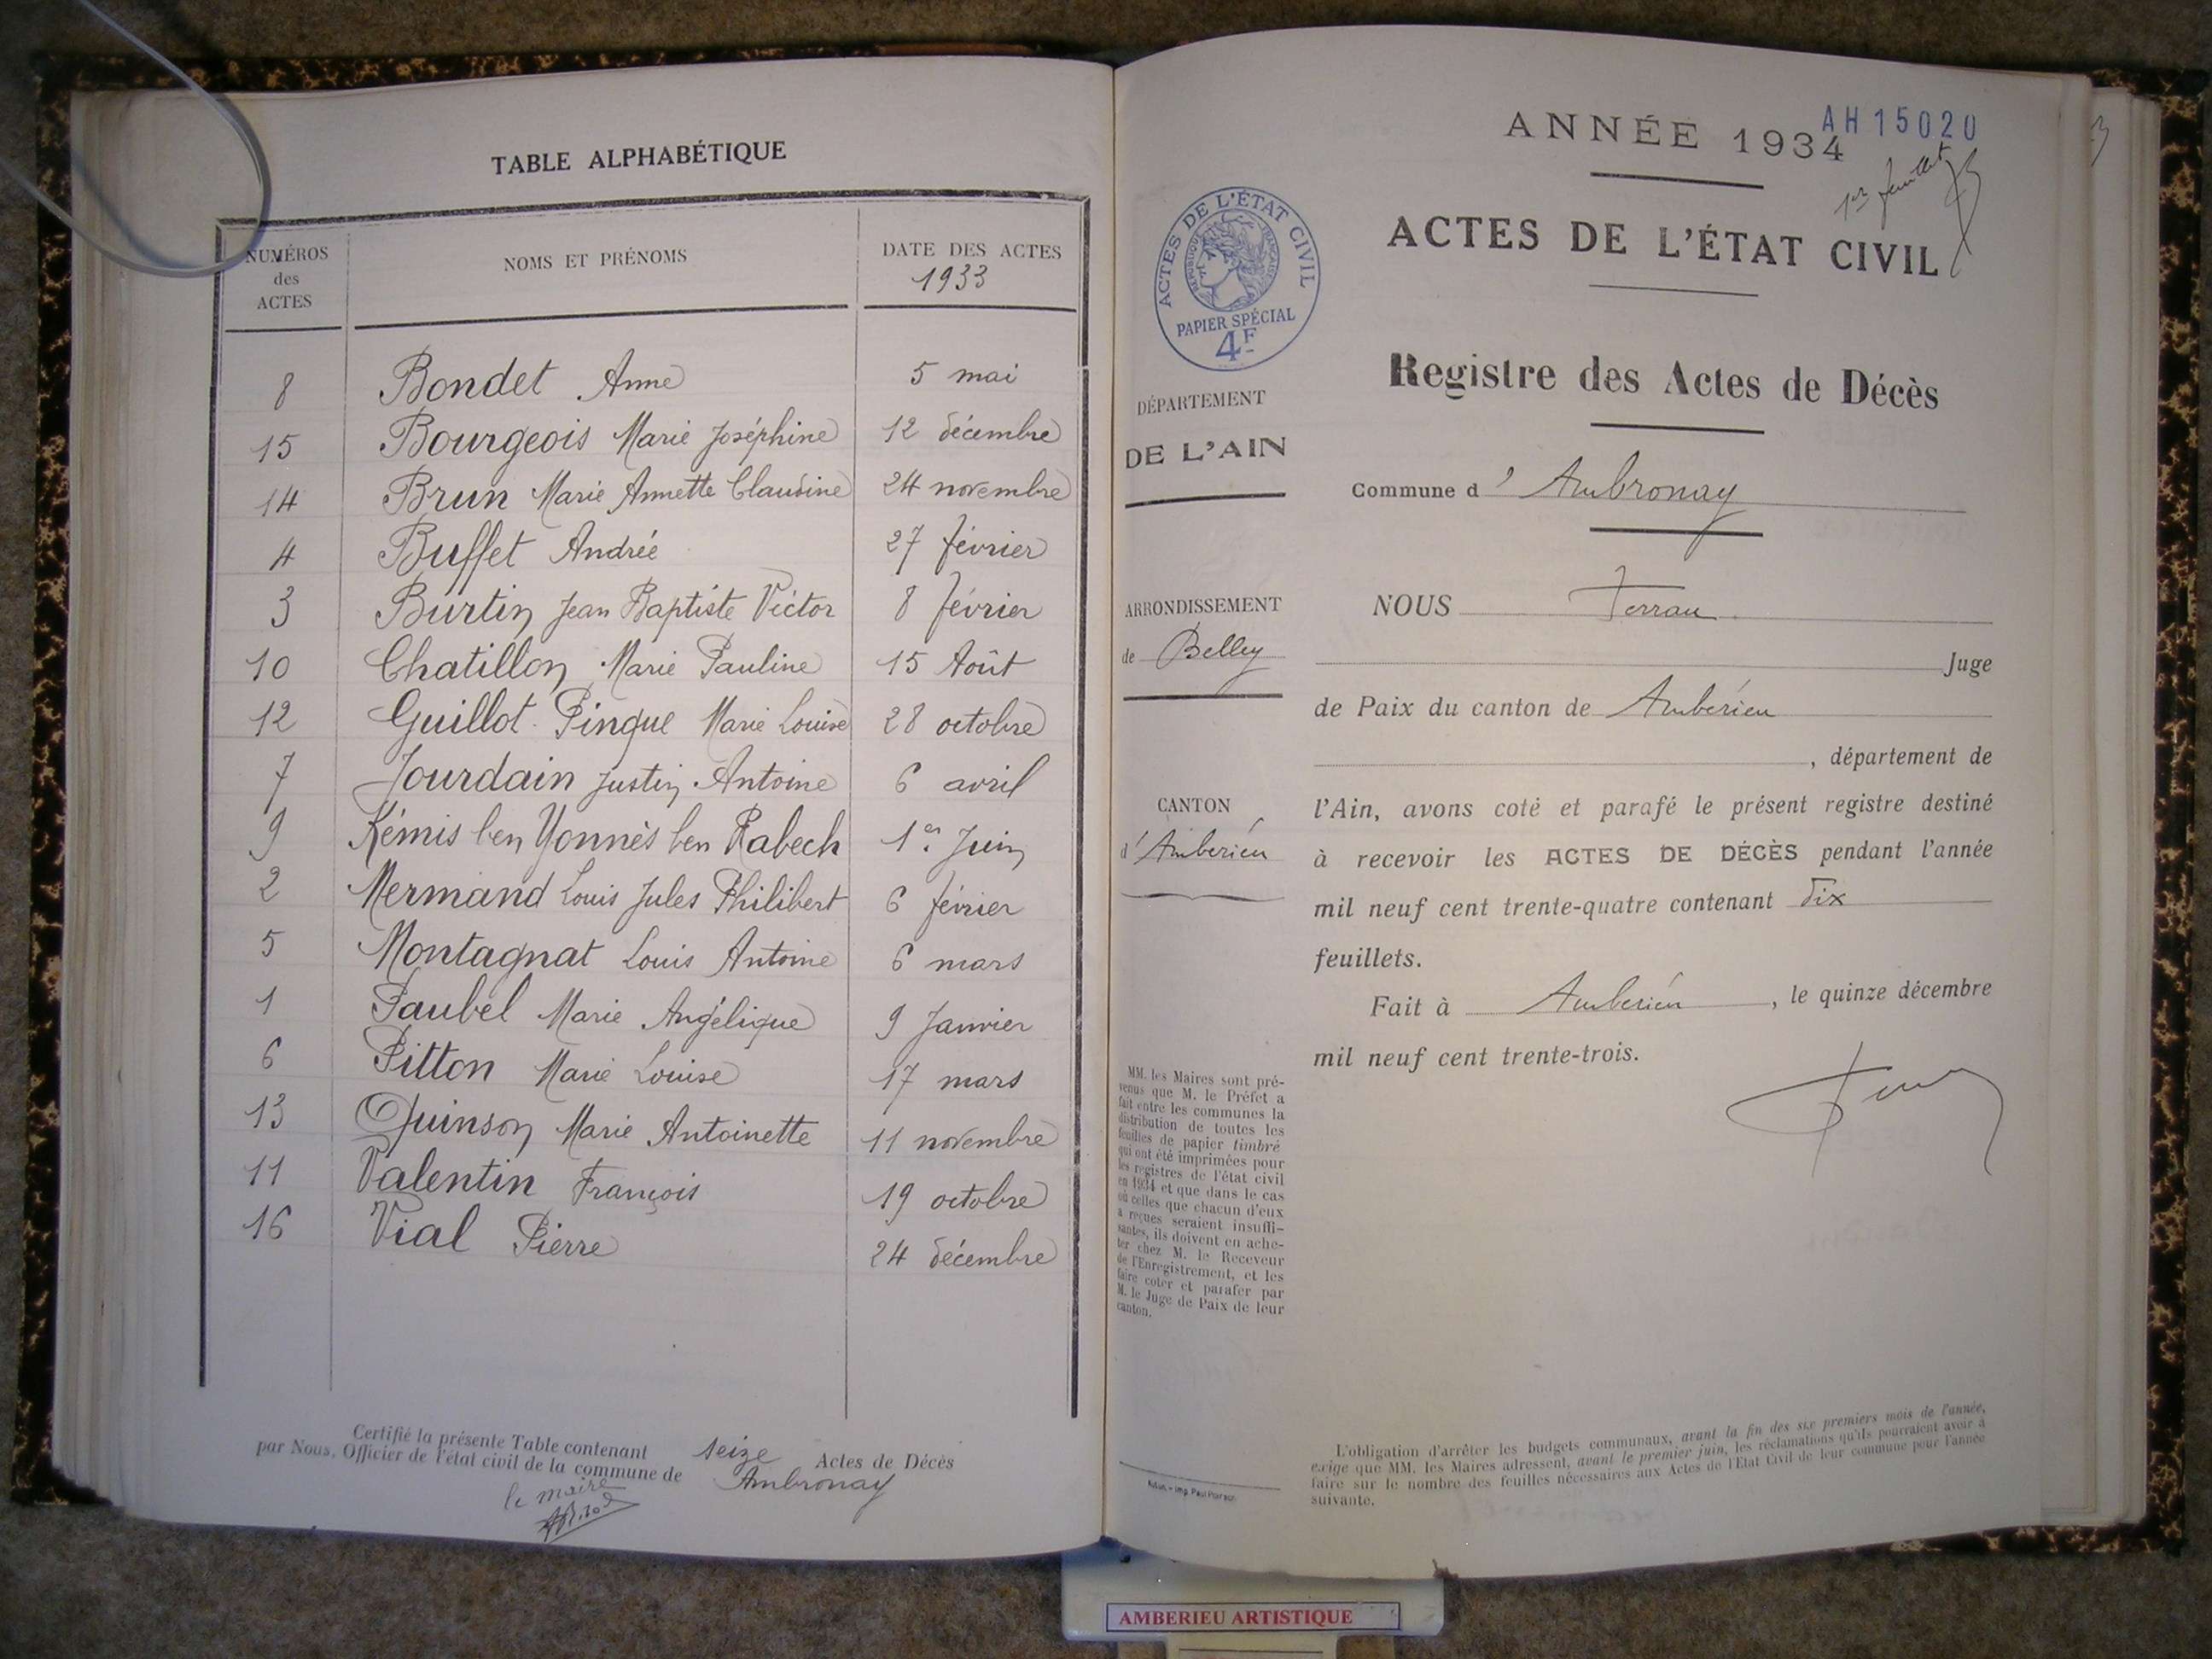 TABLE ALPHABÉTIQUE
NUMÉROS des ACTES
NOMS ET PRÉNOMS
DATE DES ACTES
1933
8 Bondet Anne 5 mai
15 Bourgeois Marie Joséphine 12 décembre
14 Brun Marie Annette Claudine 24 novembre
4 Buffet Andrée 27 février
3 Burtin Jean Baptiste Victor 8 février
10 Chatillon Marie Pauline 15 Août
12 Guillot-Pingue Marie Louise 28 octobre
7 Jourdain Justin Antoine 6 avril
9 Kémis ben Yonnès ben Rabech 1er Juin
2 Mermand Louis Jules Philibert 6 février
5 Montagnat Louis Antoine 6 mars
1 Paubel Marie Angélique 9 Janvier
6 Pitton Marie Louise 17 mars
13 Quinson Marie Antoinette 11 novembre
11 Valentin François 19 octobre
16 Vial Pierre 24 décembre
Certifié la présente Table contenant seize Actes de Décès
par Nous, Officier de l'état civil de la commune de Ambronay
le maire
AH15020
ANNÉE 1934
1er feuillet
ACTES DE L'ÉTAT CIVIL
ACTES DE L'ÉTAT CIVIL
RÉPUBLIQUE FRANÇAISE
PAPIER SPÉCIAL
4F
Registre des Actes de Décès
DÉPARTEMENT
DE L'AIN
Commune d'Ambronay
ARRONDISSEMENT
de Belley
CANTON
d'Ambérieu
NOUS Ferran
Juge
de Paix du canton de Ambérieu
, département de
l'Ain, avons coté et parafé le présent registre destiné
à recevoir les ACTES DE DÉCÈS pendant l'année
mil neuf cent trente-quatre contenant dix
feuillets.
Fait à Ambérieu, le quinze décembre
mil neuf cent trente-trois.
MM. les Maires sont pré-
venus que M. le Préfet a
fait entre les communes la
distribution de toutes les
feuilles de papier timbré
qui ont été imprimées pour
les registres de l'état civil
en 1934 et que dans le cas
où celles que chacun d'eux
a reçues seraient insuffi-
santes, ils doivent en ache-
ter chez M. le Receveur
de l'Enregistrement, et les
faire coter et parafer par
M. le Juge de Paix de leur
canton.
L'obligation d'arrêter les budgets communaux, avant la fin des six premiers mois de l'année,
exige que MM. les Maires adressent, avant le premier juin, les réclamations qu'ils pourraient avoir à
faire sur le nombre des feuilles nécessaires aux Actes de l'Etat Civil de leur commune pour l'année
suivante.
AMBERIEU ARTISTIQUE